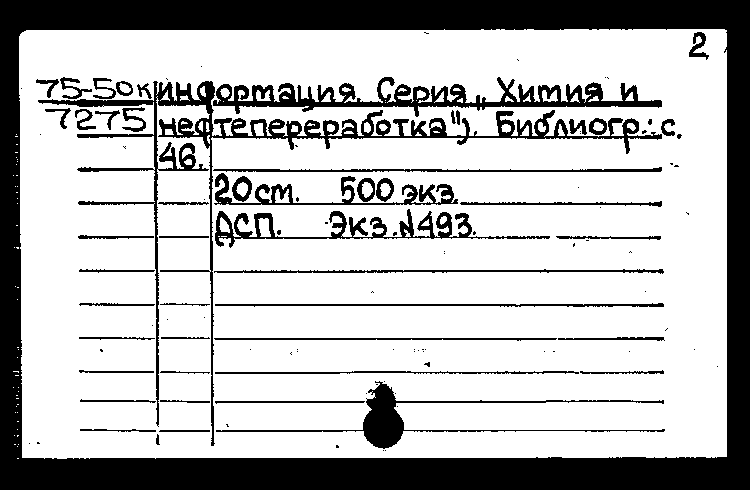 2
75-50к информация. Серия „Химия и
7275 нефтепереработка"). Библиогр.: с.
46.
20 см. 500 экз.
ДСП. Экз. №493.